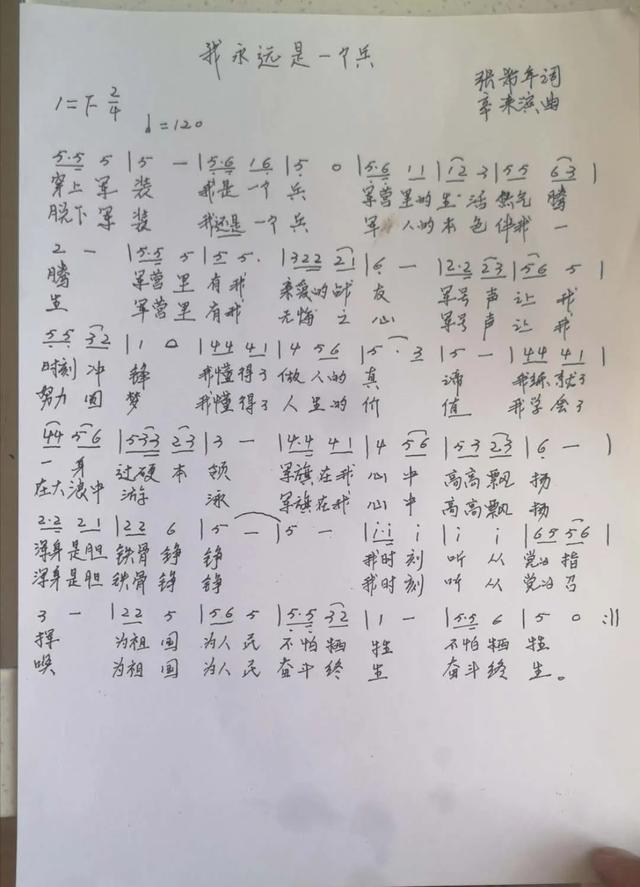 我永远是一个兵
张希年词
辛来滨曲
1=F 2/4
♩=120
5·5 5 | 5 — | 5·6 1 6 | 5 0 | 5·6 1 1 | 1 2 3 | 5 5 6 3 |
穿上军装 我是一个兵 军营里的生活热气腾
脱下军装 我还是一个兵 军人的本色伴我一
2 — | 5·5 5 | 5 5· | 3 2 2 2 1 | 6 — | 2·2 2 3 | 5 6 5 |
腾 军营里有我 亲爱的战友 军号声让我
生 军营里有我 无悔之心 军号声让我
5·5 3 2 | 1 0 | 4 4 4 1 | 4 5 6 | 5 · 3 | 5 — | 4 4 4 1 |
时刻冲锋 我懂得了做人的真谛 我练就了
努力圆梦 我懂得了人生的价值 我学会了
4 4 5 6 | 5 3 3 2 3 | 3 — | 4·4 4 1 | 4 5 6 | 5 3 2 3 | 6 — |
一身过硬本领 军旗在我心中高高飘扬
在大浪中游泳 军旗在我心中高高飘扬
2·2 2 1 | 2 2 6 | 5 — | 5 — | i·i i | i i | 6 5 5 6 |
浑身是胆铁骨铮铮 我时刻听从党的指
浑身是胆铁骨铮铮 我时刻听从党的召
3 — | 2 2 5 | 5 6 5 | 5·5 3 2 | 1 — | 5·5 6 | 5 0 :||
挥 为祖国为人民不怕牺牲 不怕牺牲
唤 为祖国为人民奋斗终生 奋斗终生。